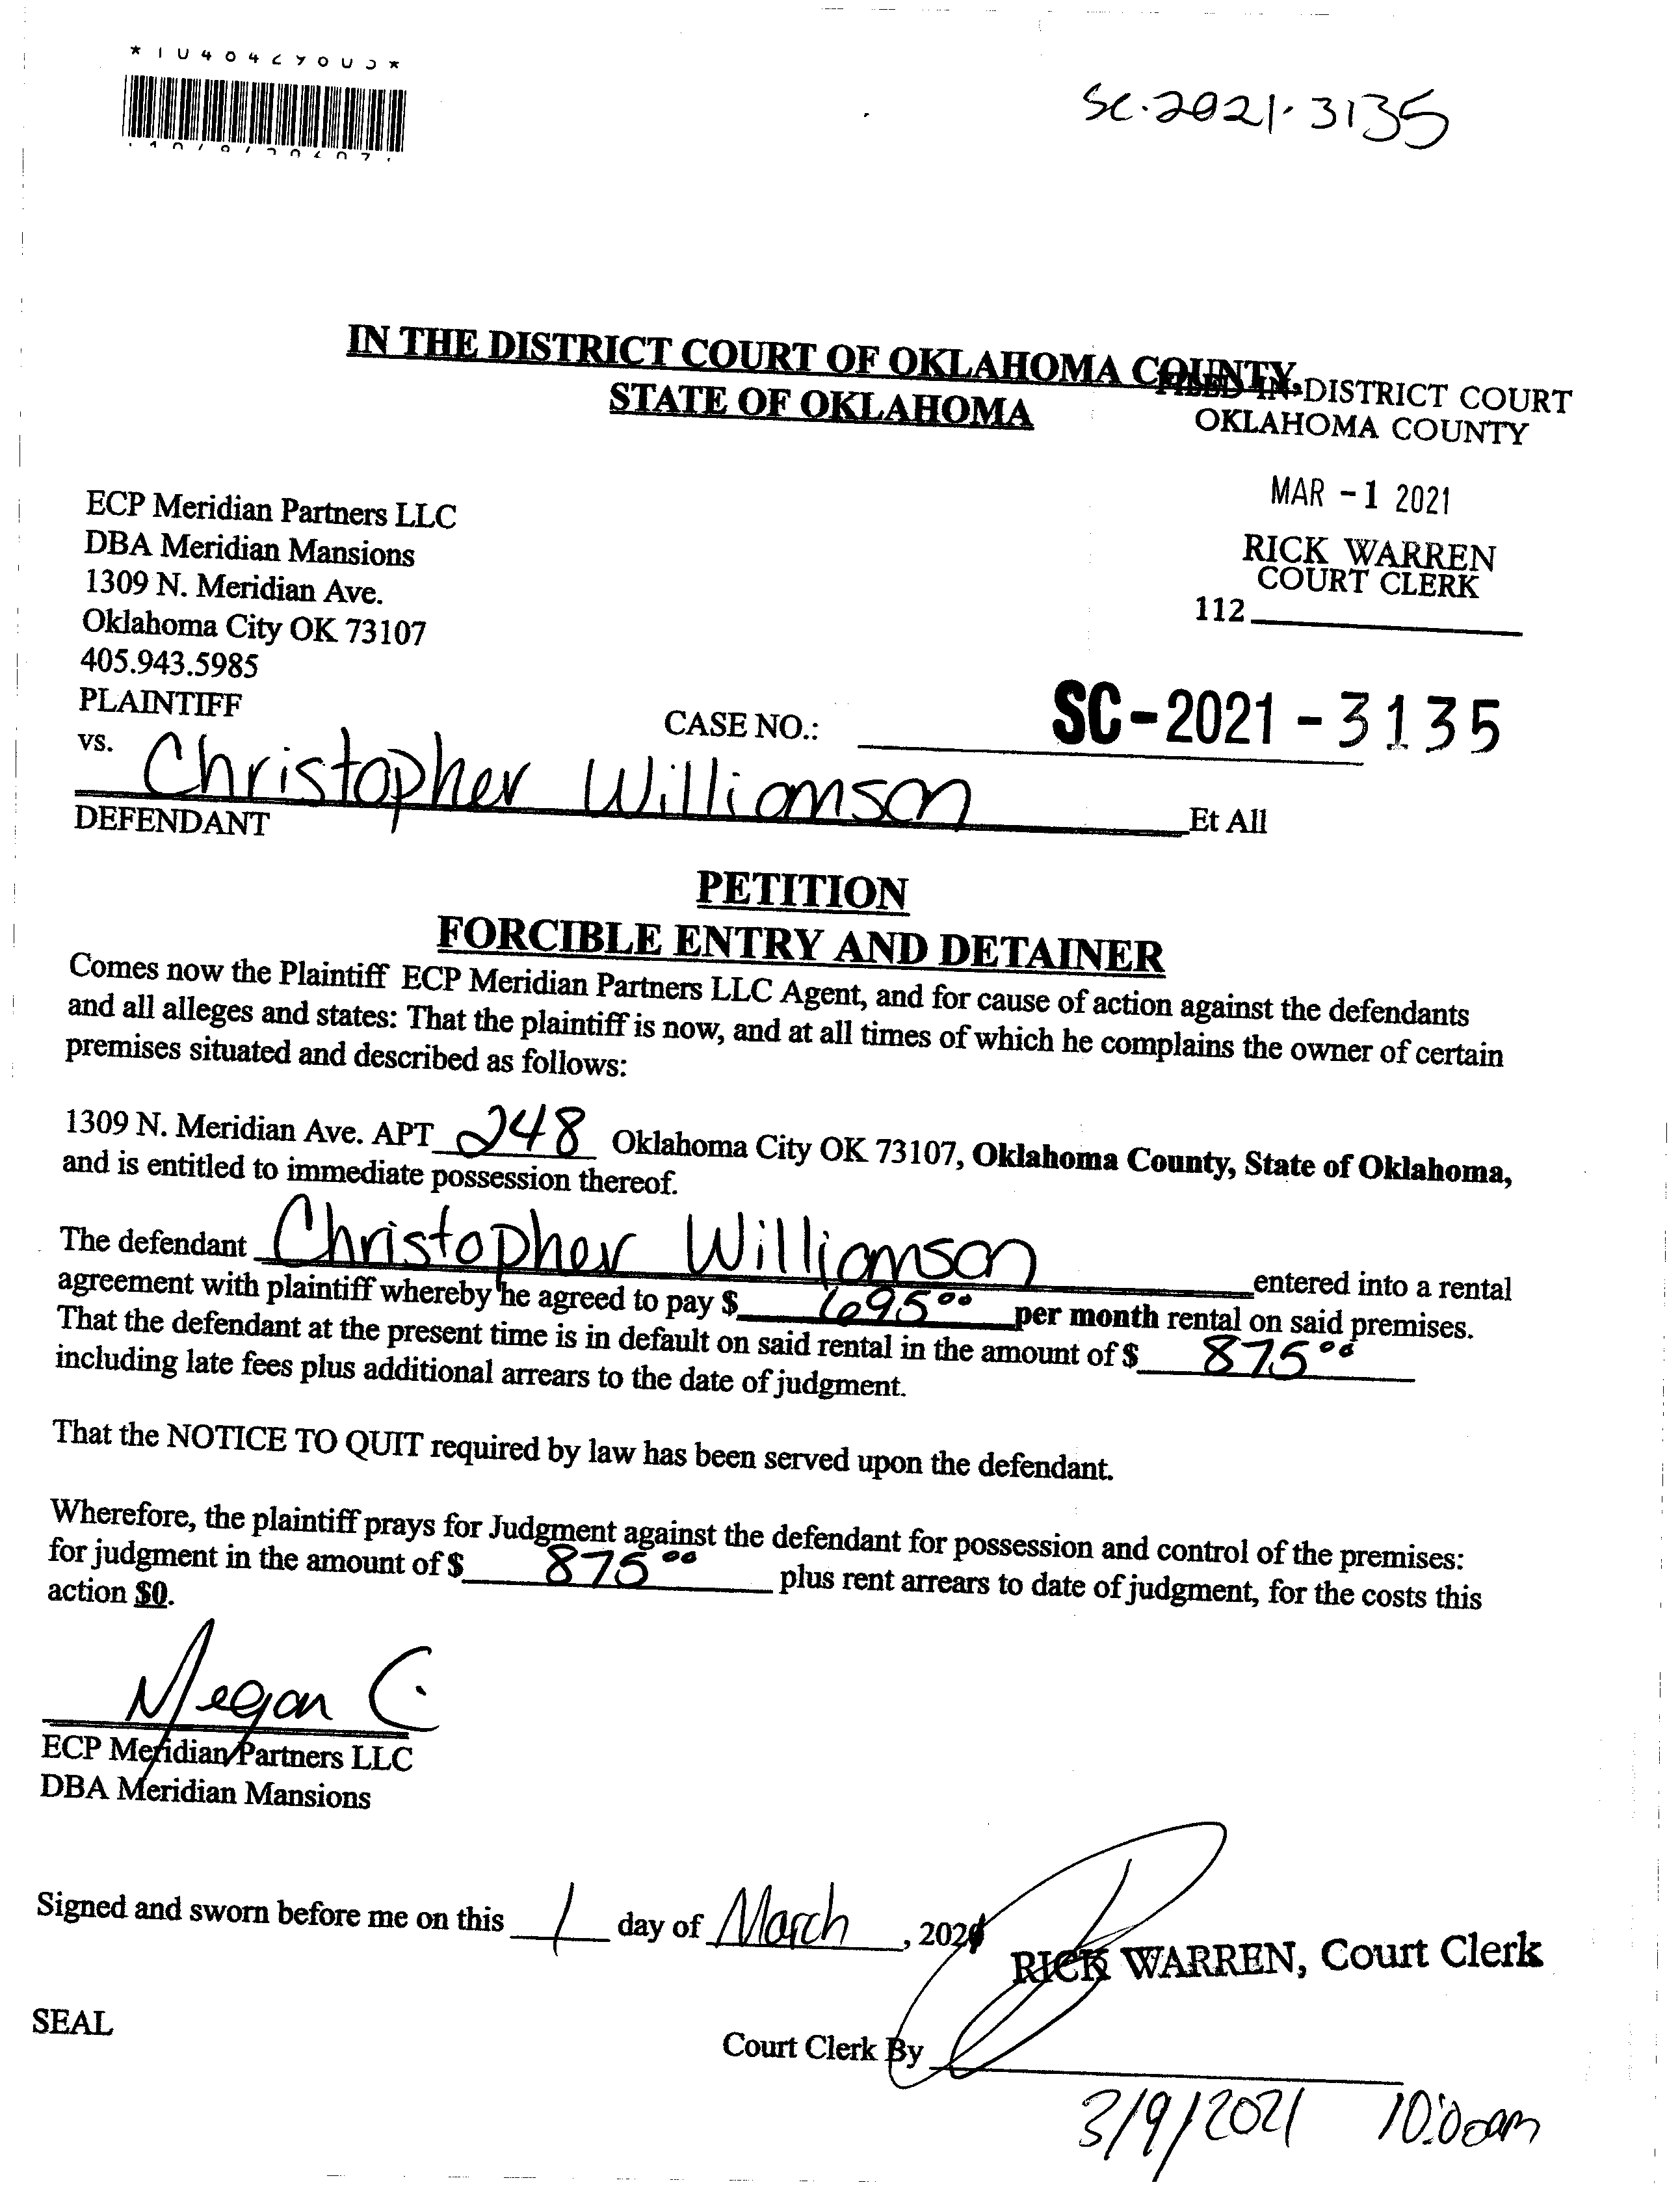 SC-2021-3135
IN THE DISTRICT COURT OF OKLAHOMA COUNTY,
STATE OF OKLAHOMA
FILED IN DISTRICT COURT
OKLAHOMA COUNTY
MAR -1 2021
RICK WARREN
COURT CLERK
112
ECP Meridian Partners LLC
DBA Meridian Mansions
1309 N. Meridian Ave.
Oklahoma City OK 73107
405.943.5985
PLAINTIFF
CASE NO.: SC-2021-3135
vs. Christopher Williamson Et All
DEFENDANT
PETITION
FORCIBLE ENTRY AND DETAINER
Comes now the Plaintiff ECP Meridian Partners LLC Agent, and for cause of action against the defendants
and all alleges and states: That the plaintiff is now, and at all times of which he complains the owner of certain
premises situated and described as follows:
1309 N. Meridian Ave. APT 248 Oklahoma City OK 73107, Oklahoma County, State of Oklahoma,
and is entitled to immediate possession thereof.
The defendant Christopher Williamson entered into a rental
agreement with plaintiff whereby he agreed to pay $ 695.00 per month rental on said premises.
That the defendant at the present time is in default on said rental in the amount of $ 875.00
including late fees plus additional arrears to the date of judgment.
That the NOTICE TO QUIT required by law has been served upon the defendant.
Wherefore, the plaintiff prays for Judgment against the defendant for possession and control of the premises:
for judgment in the amount of $ 875.00 plus rent arrears to date of judgment, for the costs this
action $0.
Megan C.
ECP Meridian Partners LLC
DBA Meridian Mansions
Signed and sworn before me on this 1 day of March, 2021
RICK WARREN, Court Clerk
SEAL
Court Clerk By
3/9/2021 10:00am